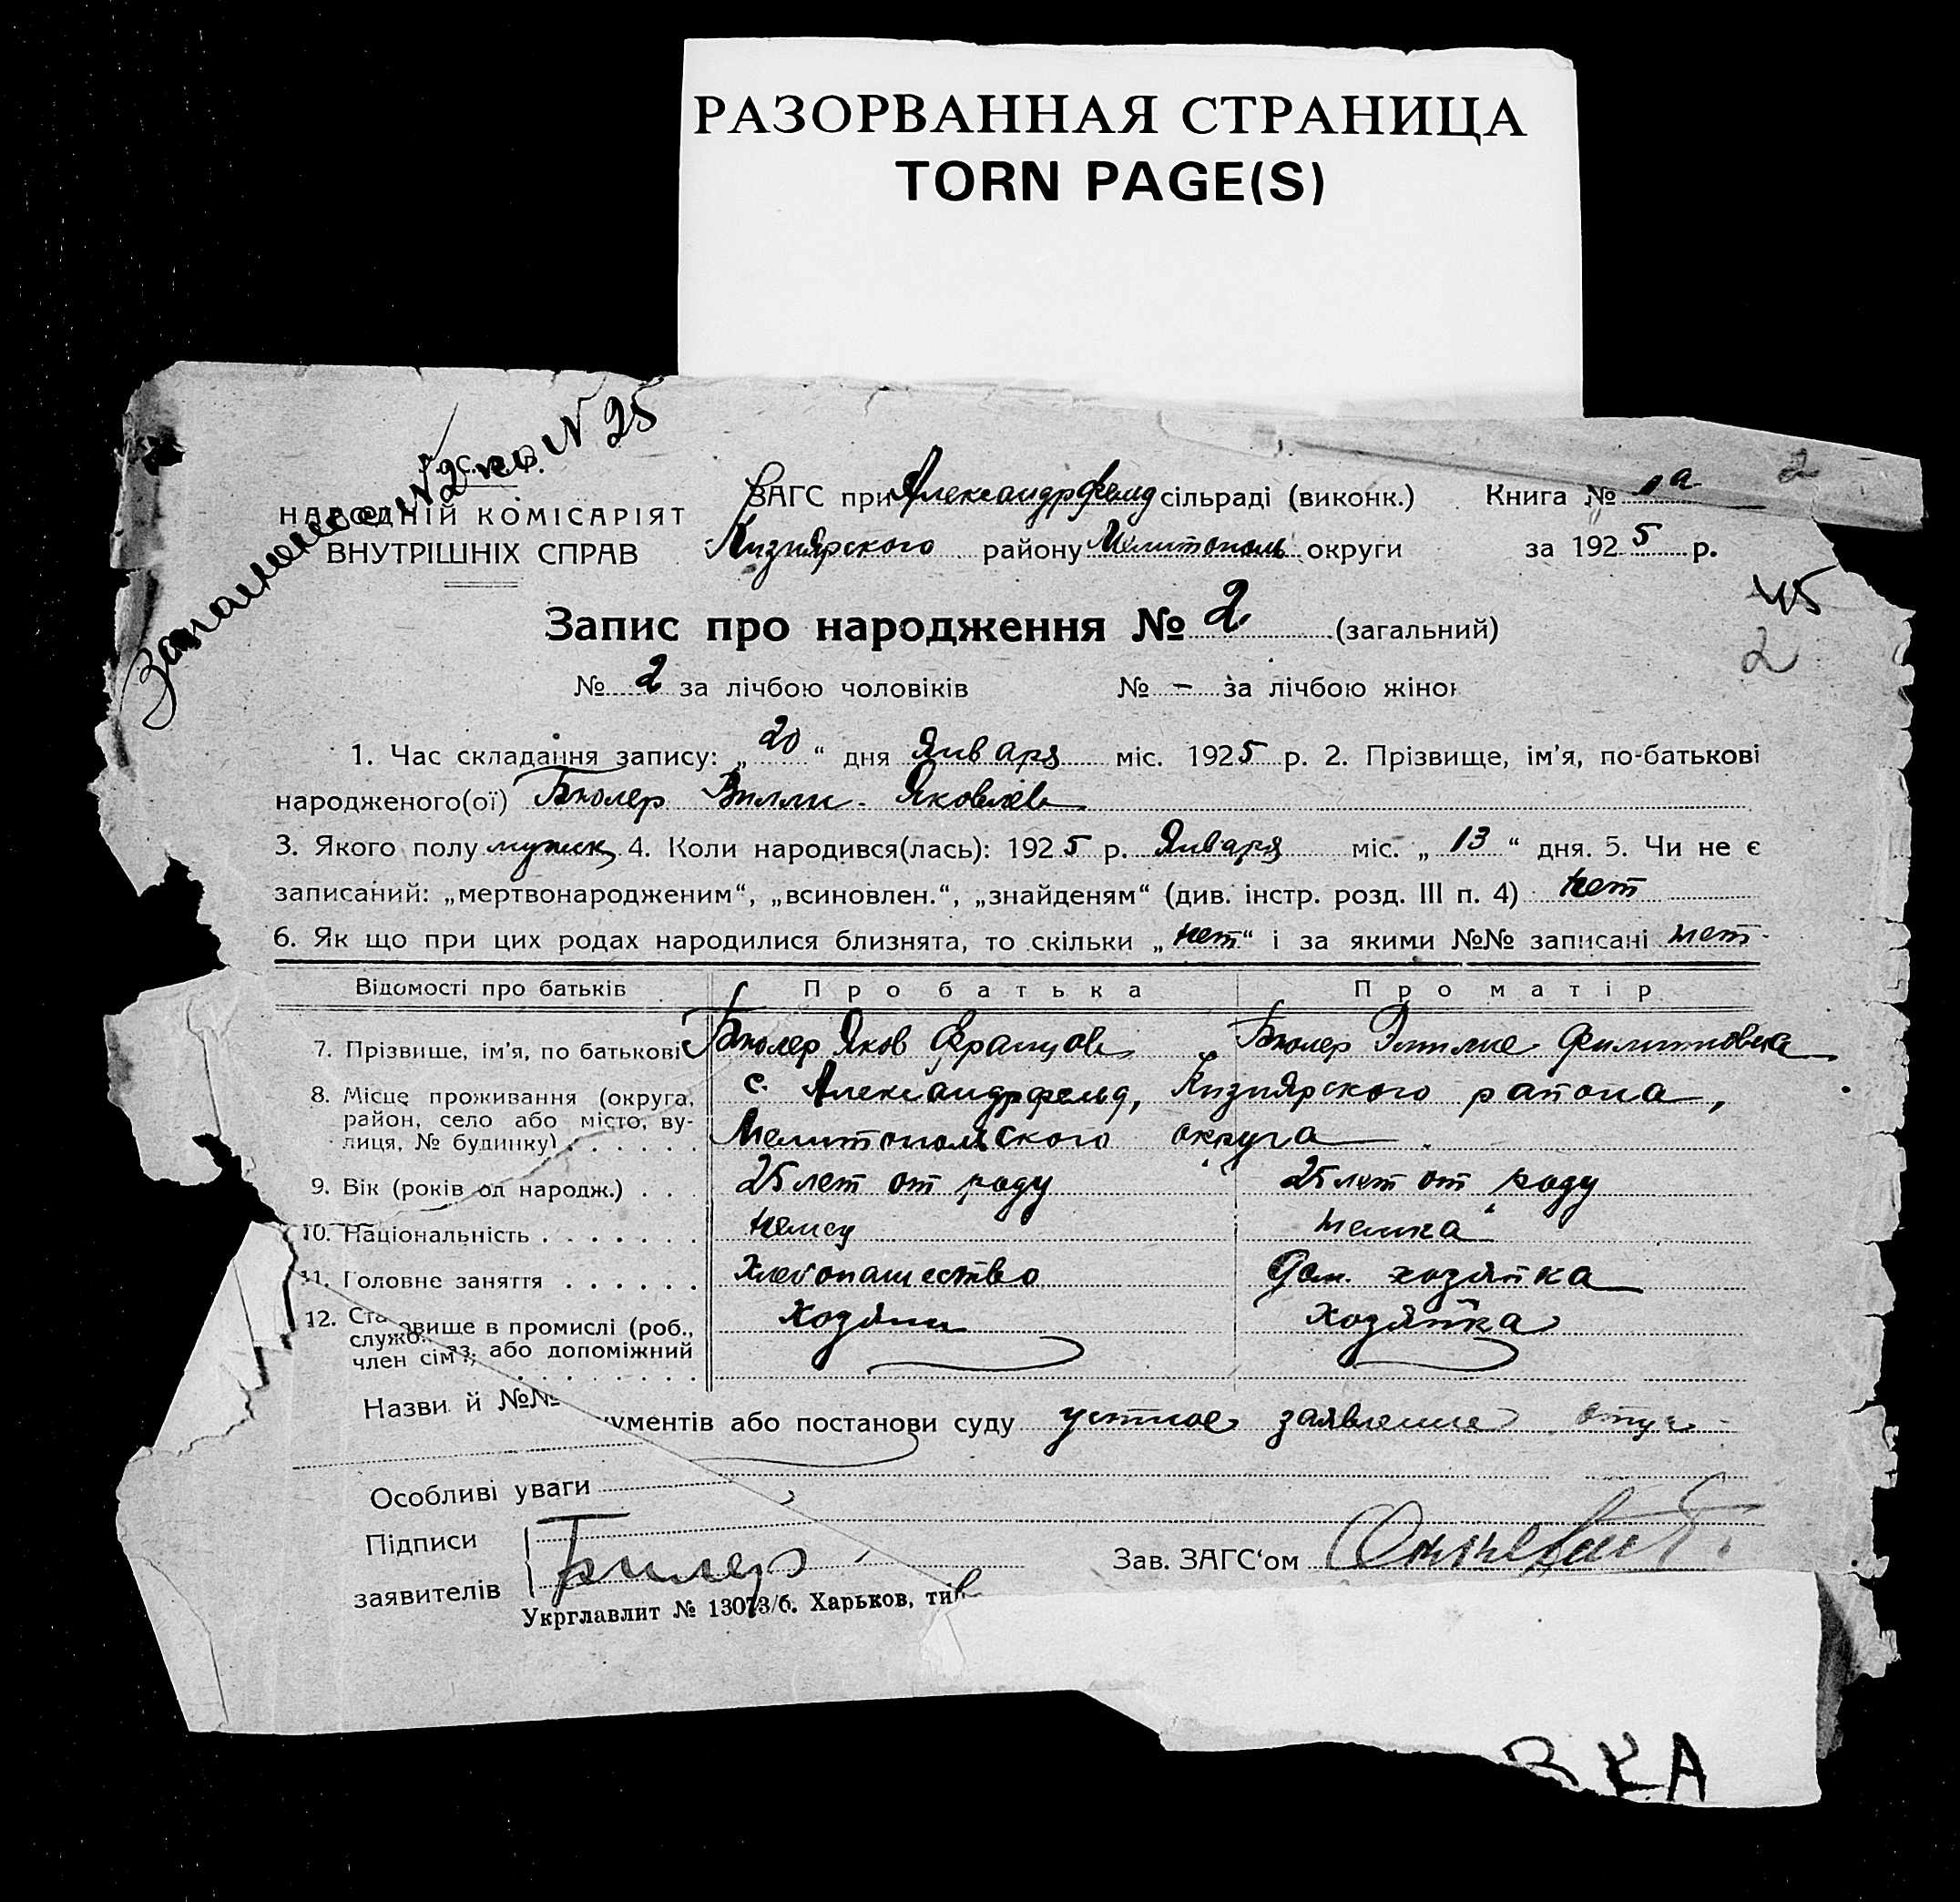 РАЗОРВАННАЯ СТРАНИЦА
TORN PAGE(S)
№ 2 по № 25
2
НАРОДНІЙ КОМІСАРІЯТ
ВНУТРІШНІХ СПРАВ
ЗАГС при Александрфельд сільраді (виконк.)
Книга № 1а
Кизиярского району Мелитополь округи
за 1925 р.
45
Запис про народження № 2 (загальний)
2
№ 2 за лічбою чоловіків № – за лічбою жінок
1. Час складання запису: „20“ дня Января міс. 1925 р. 2. Прізвище, ім'я, по-батькові
народженого(ої) Бюлер Вилли Яковлев
3. Якого полу мужск 4. Коли народився(лась): 1925 р. Января міс. „13“ дня. 5. Чи не є
записаний: „мертвонародженим“, „всиновлен.“, „знайденям“ (див. інстр. розд. III п. 4) нет
6. Як що при цих родах народилися близнята, то скільки „нет“ і за якими №№ записані нет
Відомості про батьків Про батька Про матір
7. Прізвище, ім'я, по батькові Бюлер Яков Францов Бюлер Эмилие Филипповна
8. Місце проживання (округа, район, село або місто, вулиця, № будинку) с. Александрфельд, Кизиярского района,
Мелитопольского округа
9. Вік (років од народж.) 25 лет от роду 25 лет от роду
10. Національність немец немка
11. Головне заняття Хлебопашество Дом. хозяйка
12. Становище в промислі (роб.,
служб. аз, або допоміжний
член сім'ї) хозяин хозяйка
Назви й №№ документів або постанови суду устное заявление отца
Особливі уваги
Підписи
заявителів Бюлер
Зав. ЗАГС‘ом
Укрглавлит № 13073/б. Харьков, ти
ВКА